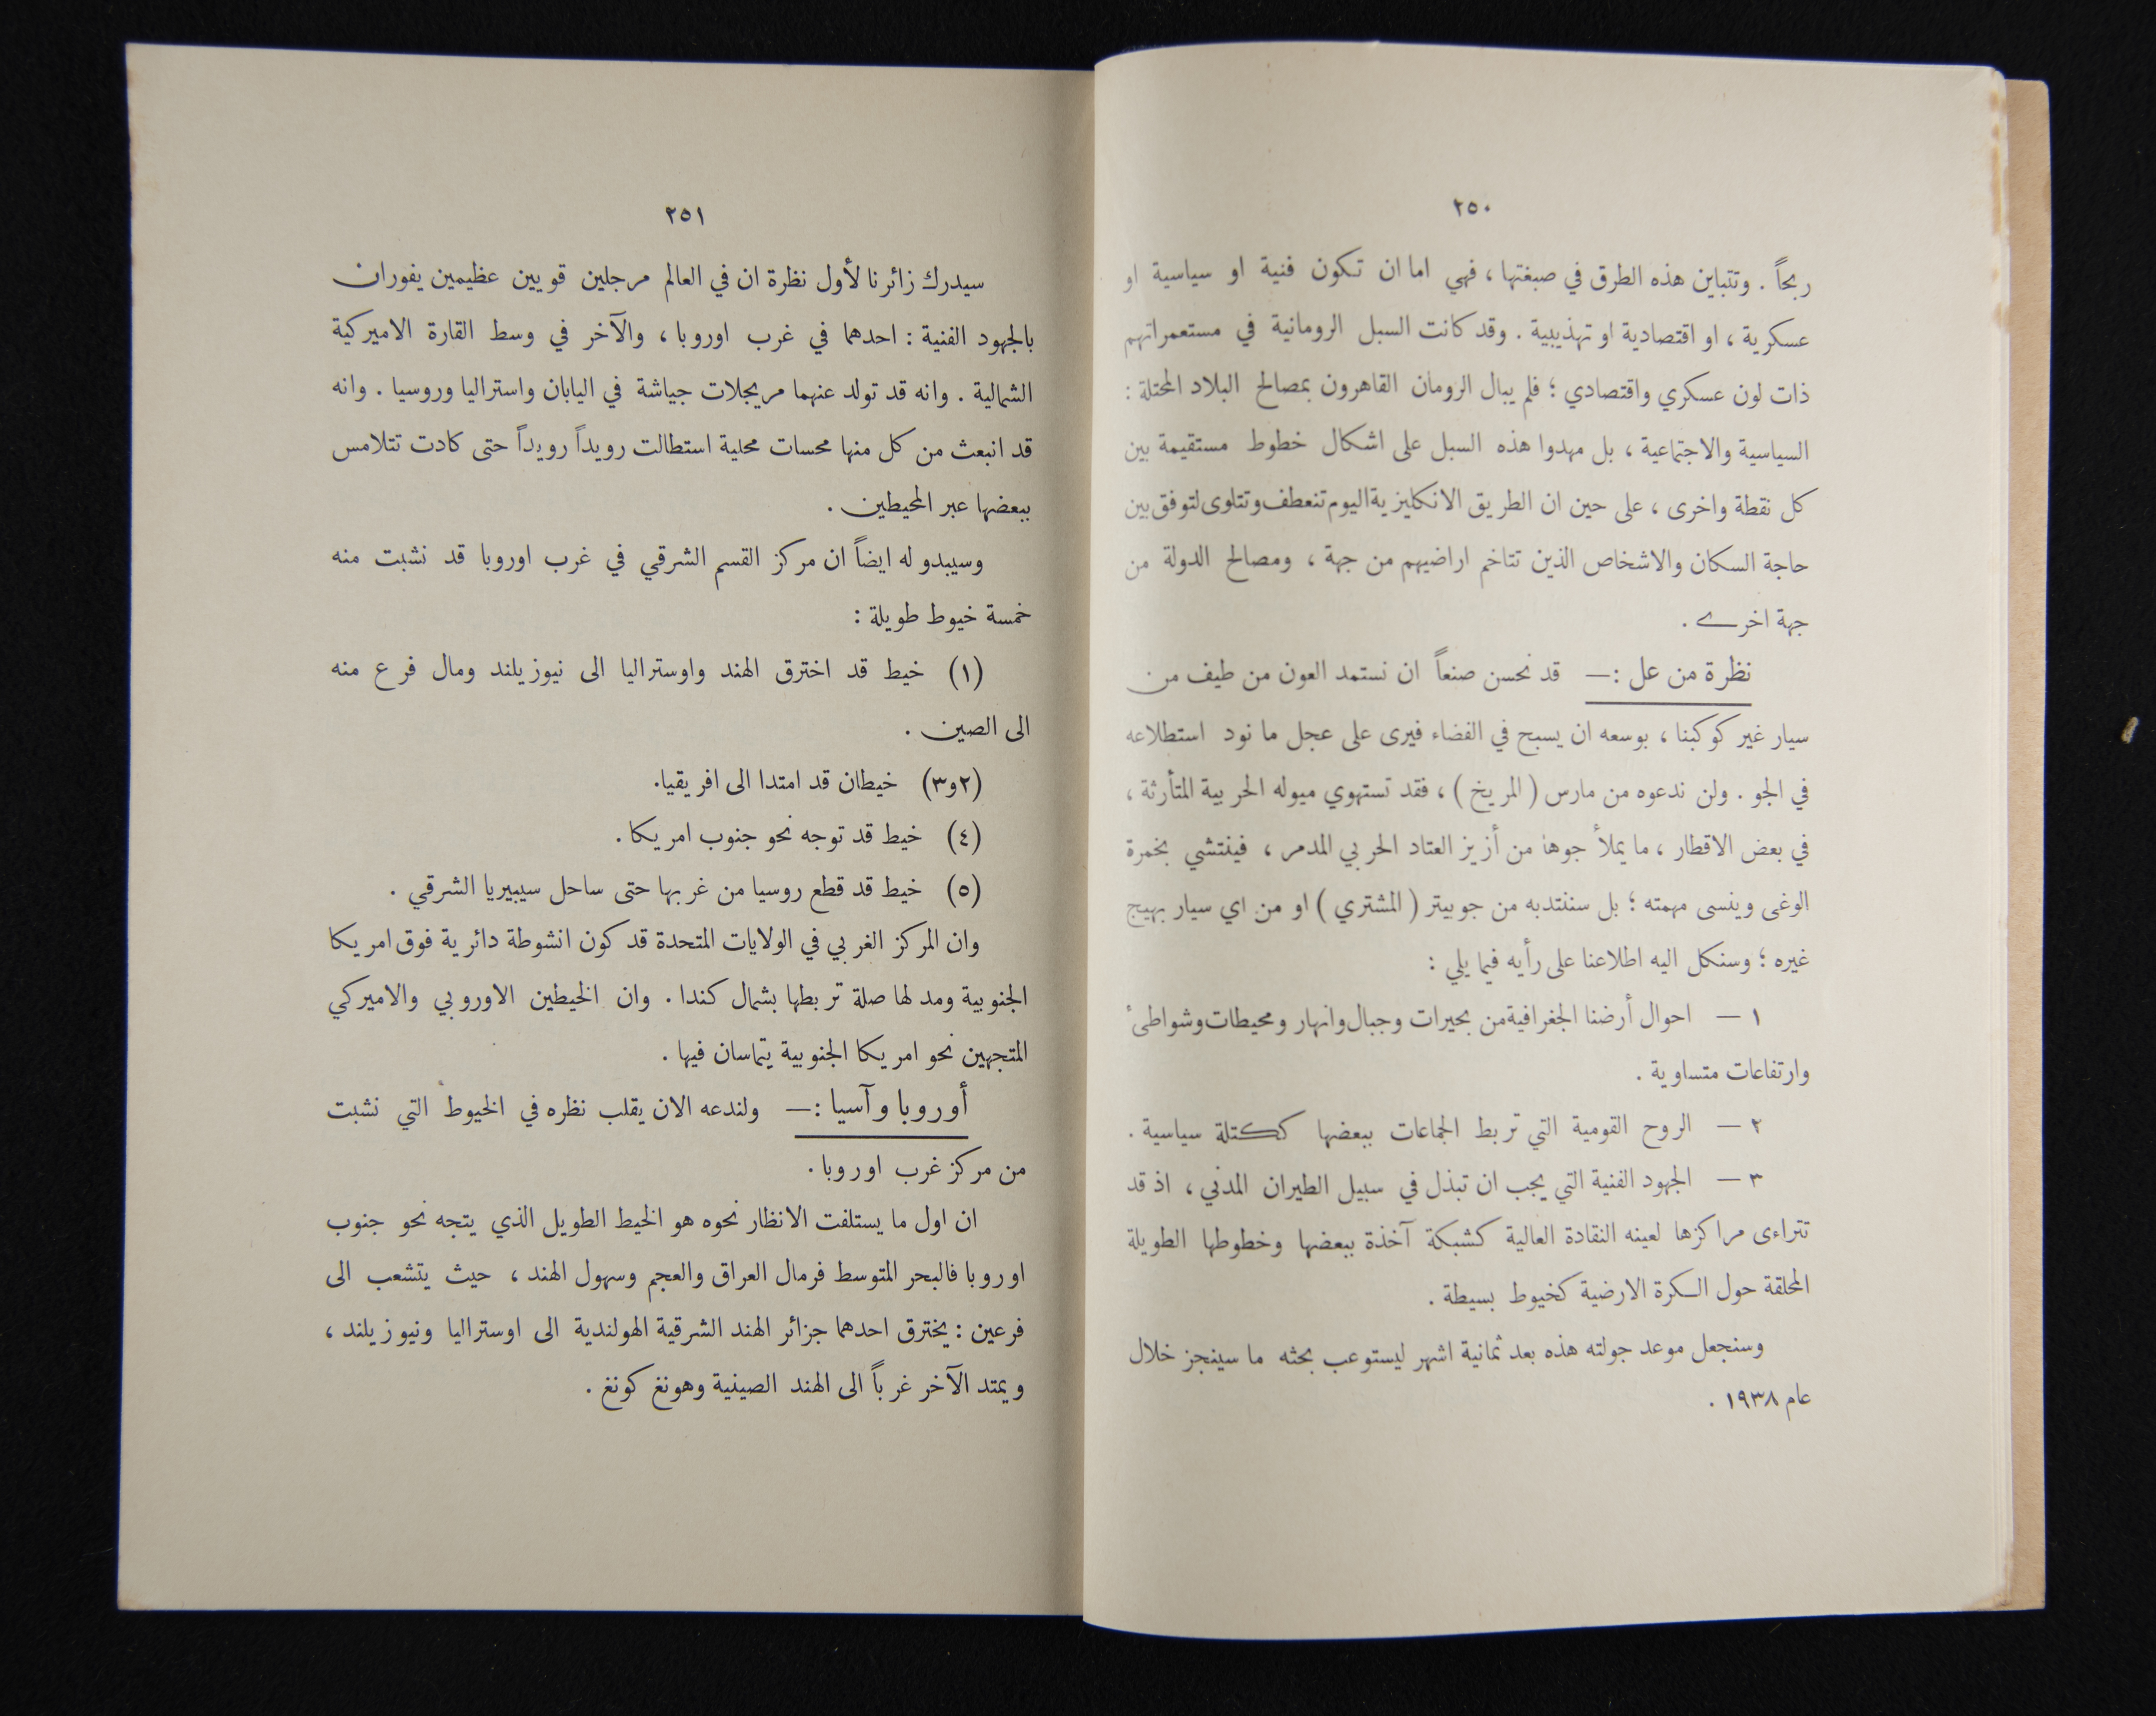 ٢٥٠
ربحاً . وتتباين هذه الطرق في صبغتها ، فهي اما ان تكون فنية او سياسية او
عسكرية ، او اقتصادية او تهذيبية . وقد كانت السبل الرومانية في مستعمراتهم
ذات لون عسكري واقتصادي ؛ فلم يبال الرومان القاهرون بمصالح البلاد المحتلة :
السياسية والاجتماعية ، بل مهدوا هذه السبل على اشكال خطوط مستقيمة بين
كل نقطة واخرى ، على حين ان الطريق الانكليزية اليوم تنعطف وتتلوى لتوفق بين
حاجة السكان والاشخاص الذين تتاخم اراضيهم من جهة ، ومصالح الدولة من
جهة اخرى .
نظرة من عل :— قد نحسن صنعاً ان نستمد العون من طيف من
سيار غير كوكبنا ، بوسعه ان يسبح في الفضاء فيرى على عجل ما نود استطلاعه
في الجو . ولن ندعوه من مارس ( المريخ ) ، فقد تستهوي ميوله الحربية المتأرثة ،
في بعض الاقطار ، ما يملأ جوها من أزيز العتاد الحربي المدمر ، فينتشي بخمرة
الوغى وينسى مهمته ؛ بل سننتدبه من جوبيتر ( المشتري ) او من اي سيار بهيج
غيره ؛ وسنكل اليه اطلاعنا على رأيه فيما يلي :
١ — احوال أرضنا الجغرافية من بحيرات وجبال وانهار ومحيطات وشواطىء
وارتفاعات متساوية .
٢ — الروح القومية التي تربط الجماعات ببعضها ككتلة سياسية .
٣ — الجهود الفنية التي يجب ان تبذل في سبيل الطيران المدني ، اذ قد
تتراءى مراكزها لعينه النقادة العالية كشبكة آخذة ببعضها وخطوطها الطويلة
المحلقة حول الكرة الارضية كخيوط بسيطة .
وسنجعل موعد جولته هذه بعد ثمانية اشهر ليستوعب بحثه ما سينجز خلال
عام ١٩٣٨ .
٢٥١
سيدرك زائرنا لأول نظرة ان في العالم مرجلين قويين عظيمين يفوران
بالجهود الفنية : احدهما في غرب اوروبا ، والآخر في وسط القارة الاميركية
الشمالية . وانه قد تولد عنهما مريجلات جياشة في اليابان واستراليا وروسيا . وانه
قد انبعث من كل منها محسات محلية استطالت رويداً رويداً حتى كادت تتلامس
ببعضها عبر المحيطين .
وسيبدو له ايضاً ان مركز القسم الشرقي في غرب اوروبا قد نشبت منه
خمسة خيوط طويلة :
(١) خيط قد اخترق الهند واوستراليا الى نيوزيلند ومال فرع منه
الى الصين .
(٢و٣) خيطان قد امتدا الى افريقيا.
(٤) خيط قد توجه نحو جنوب امريكا .
(٥) خيط قد قطع روسيا من غربها حتى ساحل سيبيريا الشرقي .
وان المركز الغربي في الولايات المتحدة قد كون انشوطة دائرية فوق امريكا
الجنوبية ومد لها صلة تربطها بشمال كندا . وان الخيطين الاوروبي والاميركي
المتجهين نحو امريكا الجنوبية يتماسان فيها .
أوروبا وآسيا :— ولندعه الان يقلب نظره في الخيوط التي نشبت
من مركز غرب اوروبا .
ان اول ما يستلفت الانظار نحوه هو الخيط الطويل الذي يتجه نحو جنوب
اوروبا فالبحر المتوسط فرمال العراق والعجم وسهول الهند ، حيث يتشعب الى
فرعين : يخترق احدهما جزائر الهند الشرقية الهولندية الى اوستراليا ونيوزيلند ،
ويمتد الآخر غرباً الى الهند الصينية وهونغ كونغ .